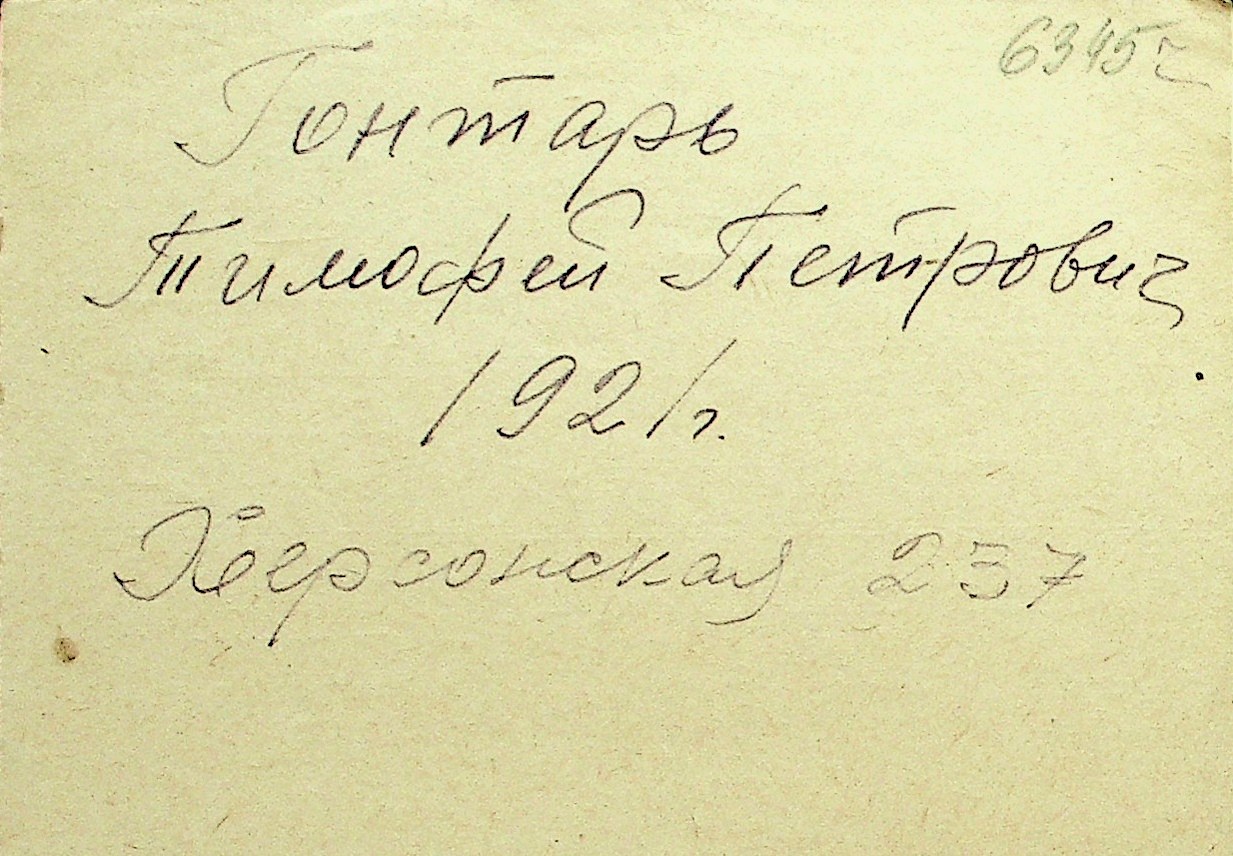 6345ч
Гонтарь
Тимофей Петрович
1921г.
Херсонская 237